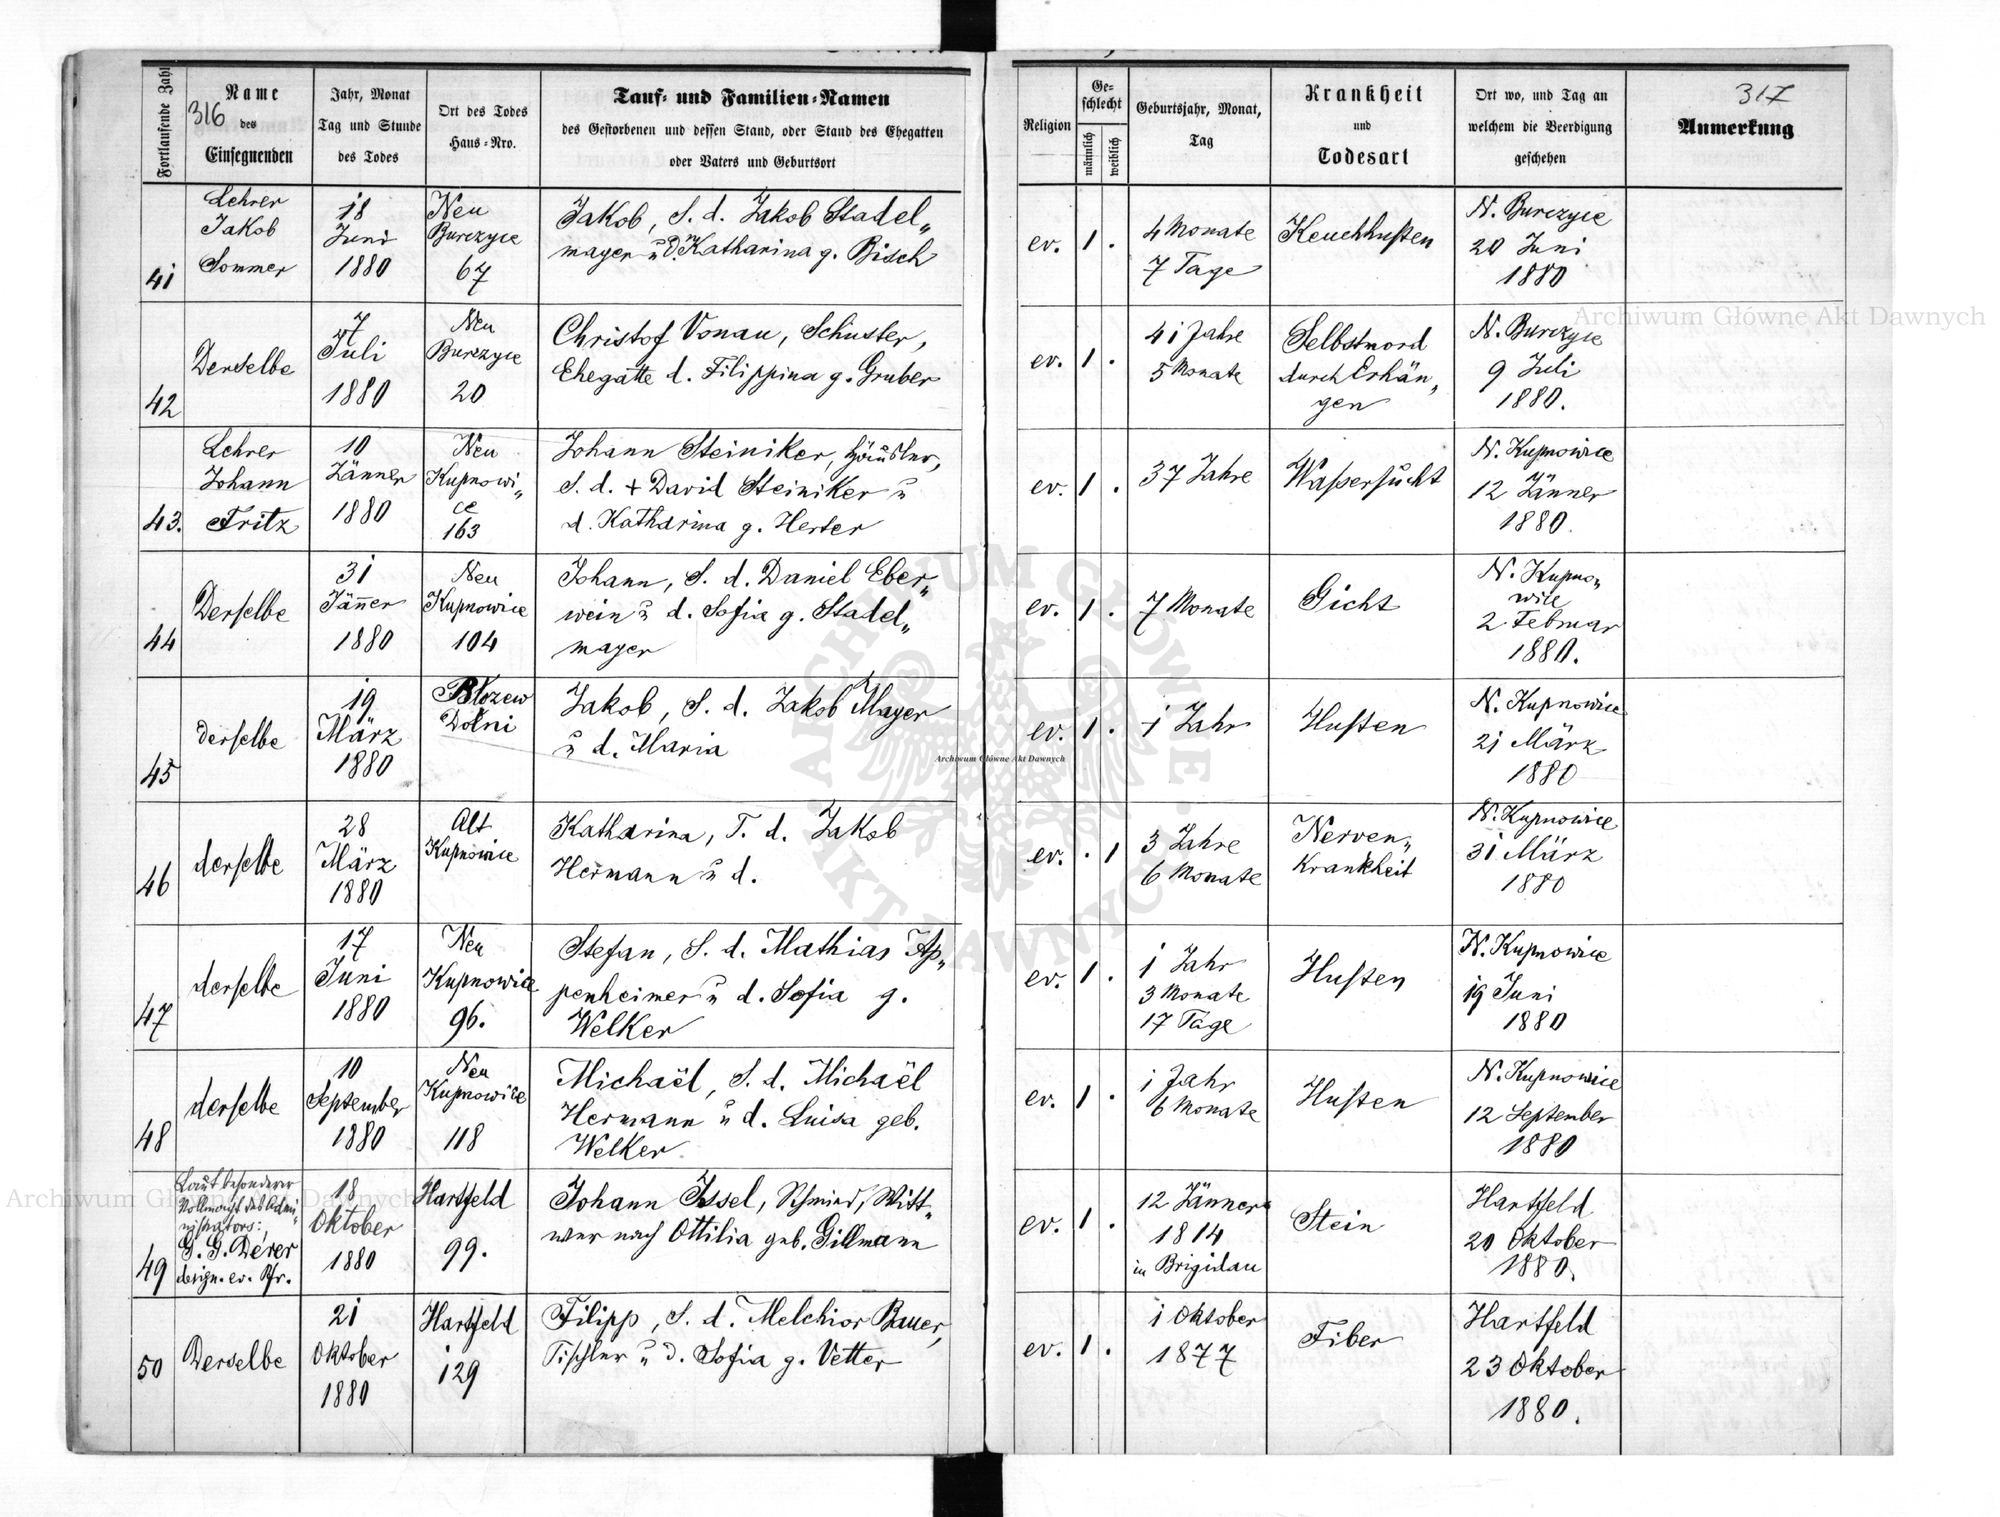 316
317
Fortlaufende Zahl
Name
des
Einsegnenden
Jahr, Monat
Tag und Stunde
des Todes
Ort des Todes
Haus-Nro.
Tauf- und Familien-Namen
des Gestorbenen und dessen Stand, oder Stand des Ehegatten
oder Vaters und Geburtsort
Religion
Ge-
schlecht
männlich
weiblich
Geburtsjahr, Monat,
Tag
Krankheit
und
Todesart
Ort wo, und Tag an
welchem die Beerdigung
geschehen
Anmerkung
41
Lehrer
Jakob
Sommer
18
Juni
1880
Neu
Burczyce
67
Jakob, S. d. Jakob Stadel„
mayer u. d. Katharina g. Bisch
ev. 1 .
4 Monate
7 Tage
Keuchhusten
N. Burczyce
20 Juni
1880
42
Derselbe
7
Juli
1880
Neu
Burczyce
20
Christof Vonau, Schuster,
Ehegatte d. Filippina g. Gruber
ev. 1 .
41 Jahre
5 Monate
Selbstmord
durch Erhän„
gen
N. Burczyce
9 Juli
1880.
43.
Lehrer
Johann
Fritz
10
Jänner
1880
Neu
Kupnowi„
ce
163
Johann Steiniker, Häusler,
S. d. + David Steiniker u
d. Katharina g. Herter
ev. 1 .
37 Jahre
Wassersucht
N. Kupnowice
12 Jänner
1880.
44
Derselbe
31
Jänner
1880
Neu
Kupnowice
104
Johann, S. d. Daniel Eber„
wein u d. Sofia g. Stadel„
mayer
ev. 1 .
7 Monate
Gicht
N. Kupno„
wice
2 Februar
1880.
45
derselbe
19
März
1880
Błozew
Dolni
Jakob, S. d. Jakob Mayer
u d. Maria
ev. 1 .
1 Jahr
Husten
N. Kupnowice
21 März
1880
46
derselbe
28
März
1880
Alt
Kupnowice
Katharina, T. d. Jakob
Hermann u d.
ev. . 1
3 Jahre
6 Monate
Nerven„
Krankheit
N. Kupnowice
31 März
1880
47
derselbe
17
Juni
1880
Neu
Kupnowice
96.
Stefan, S. d. Mathias Ap„
penheimer u d. Sofia g.
Welker
ev. 1 .
1 Jahr
3 Monate
17 Tage
Husten
N. Kupnowice
19 Juni
1880
48
derselbe
10
September
1880
Neu
Kupnowice
118
Michaël, S. d. Michaël
Hermann u d. Luisa geb.
Welker
ev. 1 .
1 Jahr
6 Monate
Husten
N. Kupnowice
12 September
1880
49
Laut besonderer
Vollmacht des Admi„
nistrators:
G. G. Derer
design. ev. Pfr.
18
Oktober
1880
Hartfeld
99.
Johann Issel, Schmied, Witt„
wer nach Ottilia geb. Gillmann
ev. 1 .
12 Jänner
1814
in Brigidau
Stein
Hartfeld
20 Oktober
1880.
50
Derselbe
21
Oktober
1880
Hartfeld
129
Filipp, S. d. Melchior Bauer,
Tischler u d. Sofia g. Vetter
ev. 1 .
1 Oktober
1877
Fiber
Hartfeld
23 Oktober
1880.
Archiwum Główne Akt Dawnych
Archiwum Główne Akt Dawnych
Archiwum Główne Akt Dawnych
ARCHIWUM GŁÓWNE
AKT DAWNYCH